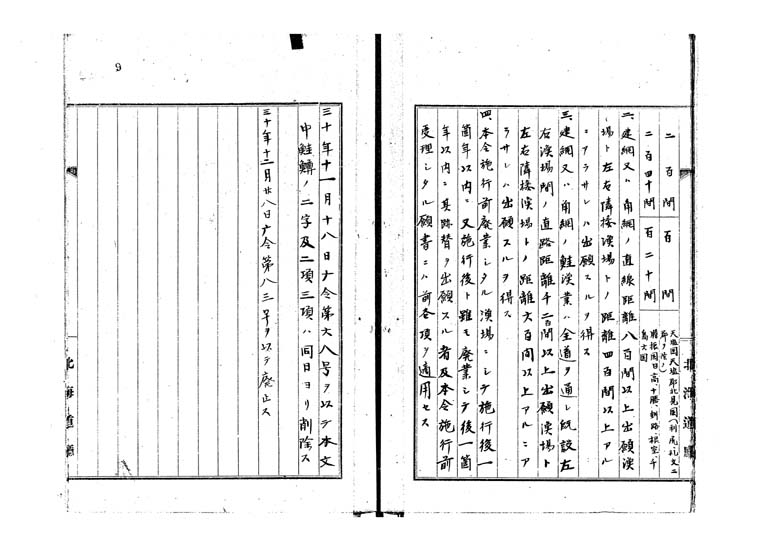 二百間　百間　天塩国天塩郡北見国(利尻、礼文二郡ヲ除ク)
二百四十間　百二十間　胆振国日高、十勝、釧路、根室、千島六国
二、建網又ハ角網ノ直線距離八百間以上出願漁
場ト左右隣接漁場トノ距離四百間以上アル
ニアラサレハ出願スルヲ得ス
三、建網又ハ角網ノ鮭漁業ハ全道ヲ通シ既設左
右漁場間ノ直路距離千二百間以上出願漁場ト
左右隣接漁場トノ距離六百間以上アルニア
ラサレハ出願スルヲ得ス
四、本令施行前廃業シタル漁場ニシテ施行後一
箇年以内ニ又施行後ト雖モ廃業シテ後一箇
年以内ニ其跡替ヲ出願スル者及本令施行前
受理シタル願書ニハ前各項ヲ適用セス
北海道廳
9
三十年十一月十八日庁令第六八号ヲ以テ本文
中鮭鱒ノ二字及二項三項ハ同日ヨリ削除ス
三十年十二月廿八日庁令第八三号ヲ以テ廃止ス
北海道廳